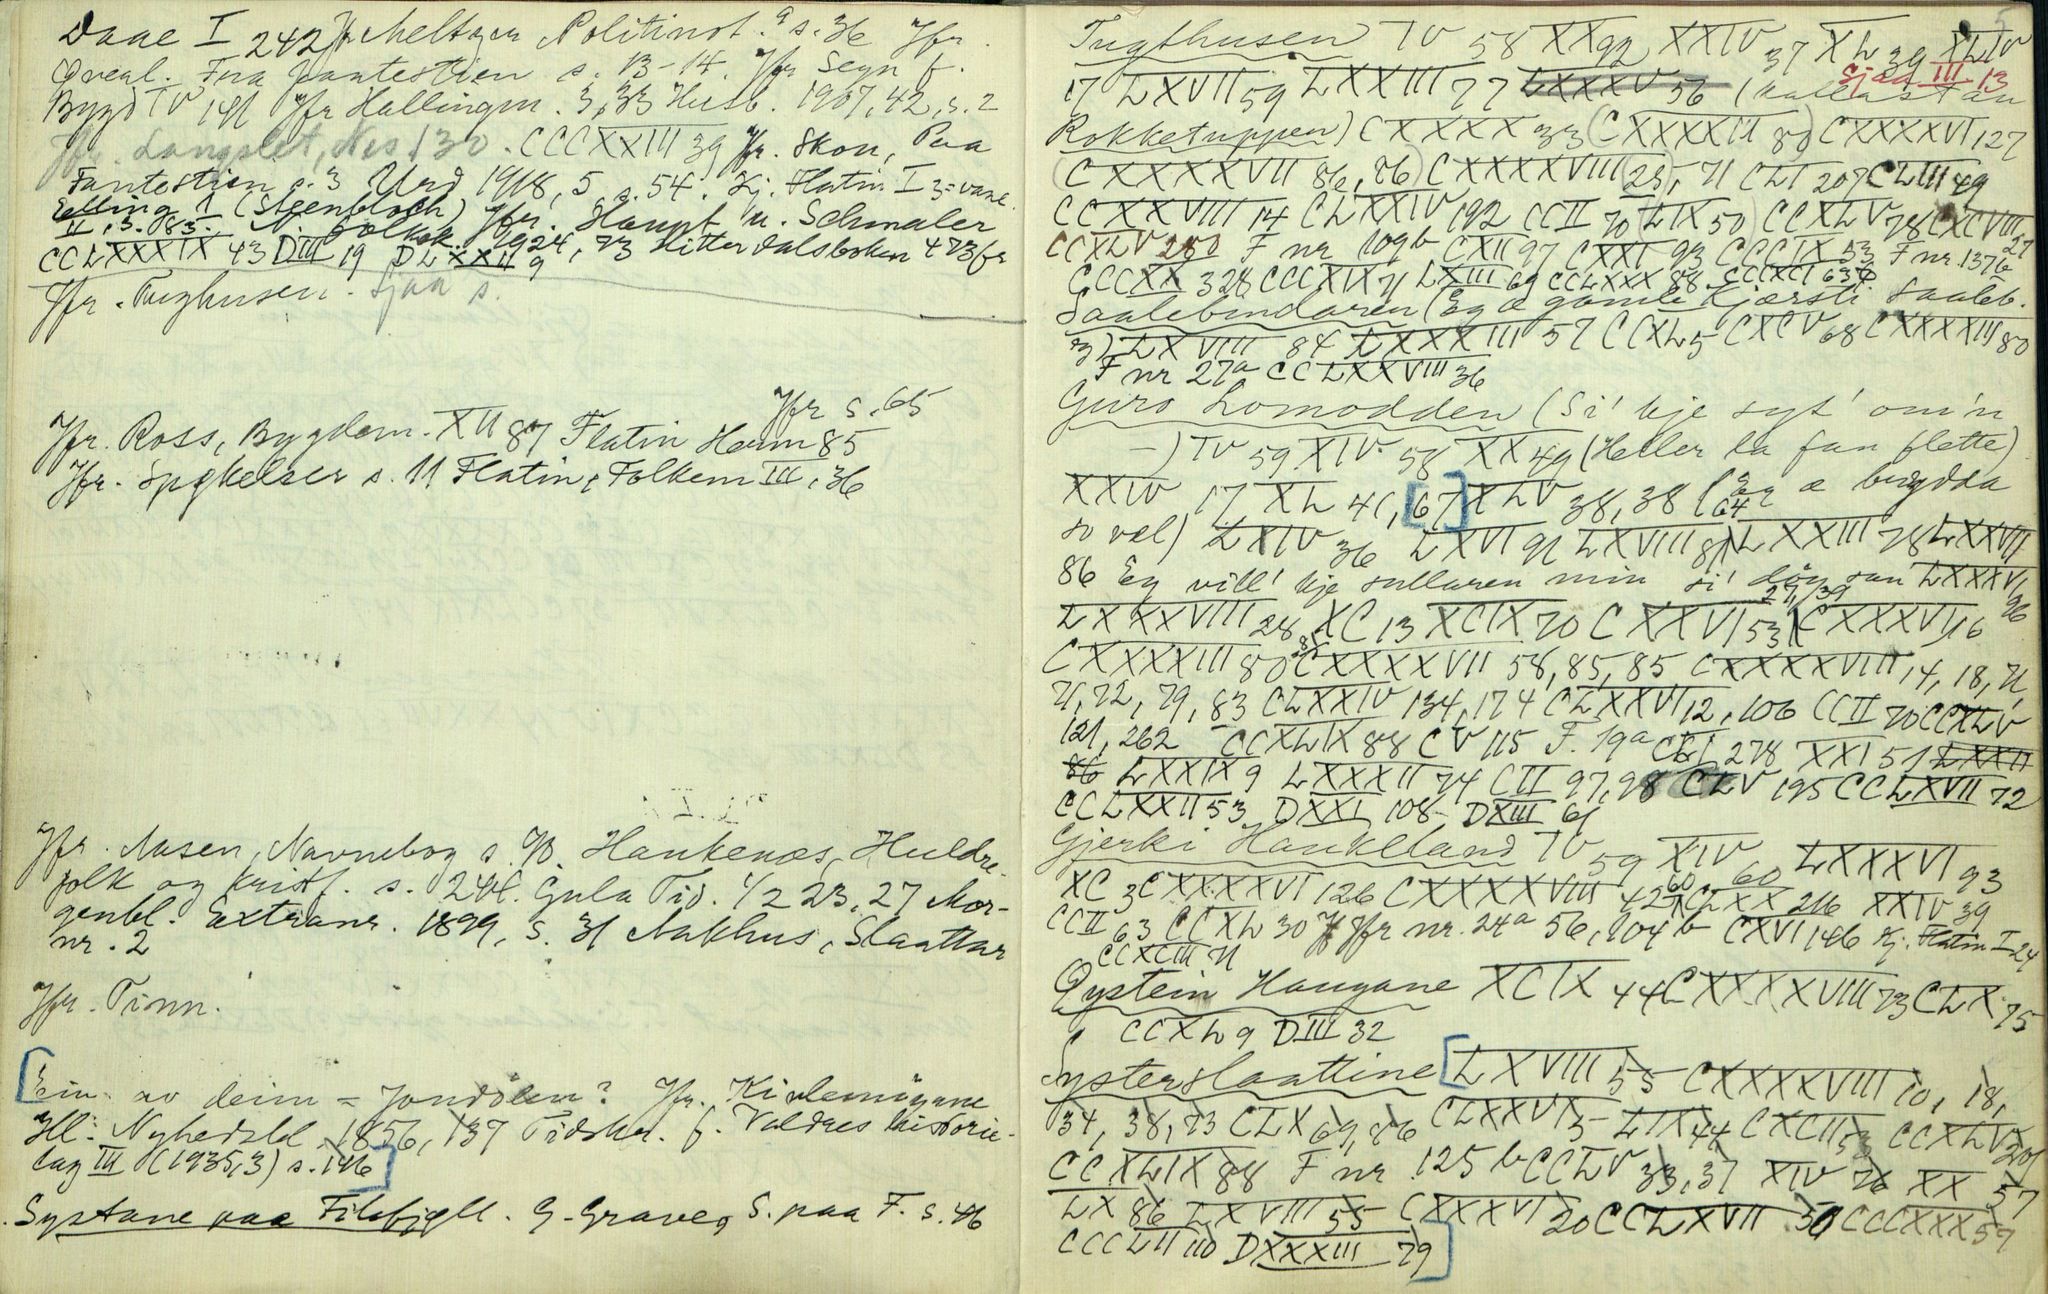 Daae I 242 Jfr Meltzer Politinot. s. 36 Jfr.
Qvenl. Fra Fantestien s. 13-14. Jfr Segn f.
Bygd IV 141 Jfr Hallingen. 3, 33 Husb. 1907, 42, s. 2
Jfr. Langslet, Nes 130. CCCXXIII 39 Jfr. Skou, Paa
Fantestien s. 3 Urd 1918, 5 s. 54. Kj. Flatin I
Elling 1 (Steenbloch) Jfr. Haupt u. Schmaler
II, s. 185. 1924, 73 Hitterdalsboken 473 fr
CCLXXXIX 43 DIII 19 DLXXII 9
Jfr. Tughusen. Sjaa s.
Jfr s. 65
Jfr. Ross, Bygdem. XII 87 Flatin Heim 85
Jfr. Spøkelser s. 11 Flatin, Folkem III, 36
Jfr. Aasen, Navnebog s. Hankenæs, Huldre-
folk og kristf. s. 241. Gula Tid. 1/2 23, 27 Mor-
genbl. Extranr. 1899, s. 31 Nakhus, Slaattar
nr. 2
Jfr. Tinn.
av deim = Jondølen? Jfr. Kivlemöyane
Ill. Nyhedsbl. 1856, 137 Tidskr. f. Valdres historie-
lag III (1935, 3) s. 146
Systane paa Filefjell. G. Grave, S. paa F. s. 46
5
Tugthusen IV 58 XX 92 XXIV 37 XL 39 XLIV
Sjaa III 13
17 LXVII 59 LXXIII 77 LXXXV 56
Rokketuppen) CXXXX 33 (CXXXXIII 80) CXXXXVI 127
(CXXXXVII 86, 86) CXXXXVIII (25), 71 CLI 207 CLIII 49
CCXXVIII 14 CLXXIV 192 CCII 70 LIX 50) CCXLV 78 CXCVIII 27
CCXLV 250 F nr 109b CXII 97 CXXI 93 CCCIX 53 F nr. 137b
CCCXX 328 CCCXIX 71 LXIII 69 CCLXXX 88 CCCXCI 63
Saalebindaren (Eg æ gamle Kjærsti Saaleb.
3) LXVIII 84 LXXXIII 57 CCXL 5 CXCV 68 CXXXXIII 80
F nr 27a CCLXXVIII 36
Guro Lomodden (Si' kje syt' om'n
—) IV 59 XIV 58 XX 49 (Heller la fan flette)
XXIV 17 XL 41, [67] XLV 38, 38 64 (Eg æ brydda
so vel) LXIV 36 LXVI 91 LXVIII 81 LXXIII 78 LXXVII
86 Eg vill' kje sullaren min si' LXXXVI 96
LXXXVIII 28 XC 13 XCIX 70 CXXVI 53 27, 39 CXXXVI 16
CXXXXIII 80 CXXXXVII 58, 85, 85 CXXXXVIII 14, 18, 71,
71, 72, 79, 83 CLXXIV 134, 174 CLXXVI 12, 106 CCII 70 CCXLV
121, 262 CCXLIX 88 CV 115 F. 19a CLI 278 XXI 51 LXXII
86 LXXIX 9 LXXXII 74 CII 97, 98 CLV 195 CCLXVII 72
CCLXXII 53 DXXI 108 DXIII 61
Gjerki Haukeland IV 59 XIV 60 LXXXVI 93
XC 3 CXXXXVI 126 CXXXXVIII 42 60 CLXX 216 XXIV 39
CCII 63 CCXL 30 Jfr nr. 24a 56, 104b CXVI 146 Kj. Flatin I 24
CCXCIII 71
Øystein Haugane XCIX 44 CXXXXVIII 73 CLX 75
CCXL 9 DIII 32
Systerslaattine [LXVIII 55 CXXXXVIII 10, 18,
34, 38, 73 CLX 69, 76 CLXXVI 5 LIX 44 CXCII 53 CCXLV 201
CCXLIX 88 F nr. 125b CCLV 33, 37 XIV 76 XX 57
LX 86 LXVIII 55 CXXXVI 20 CCLXVII 50 CCCXXX 57
CCCLII 110 DXXXIII 79]